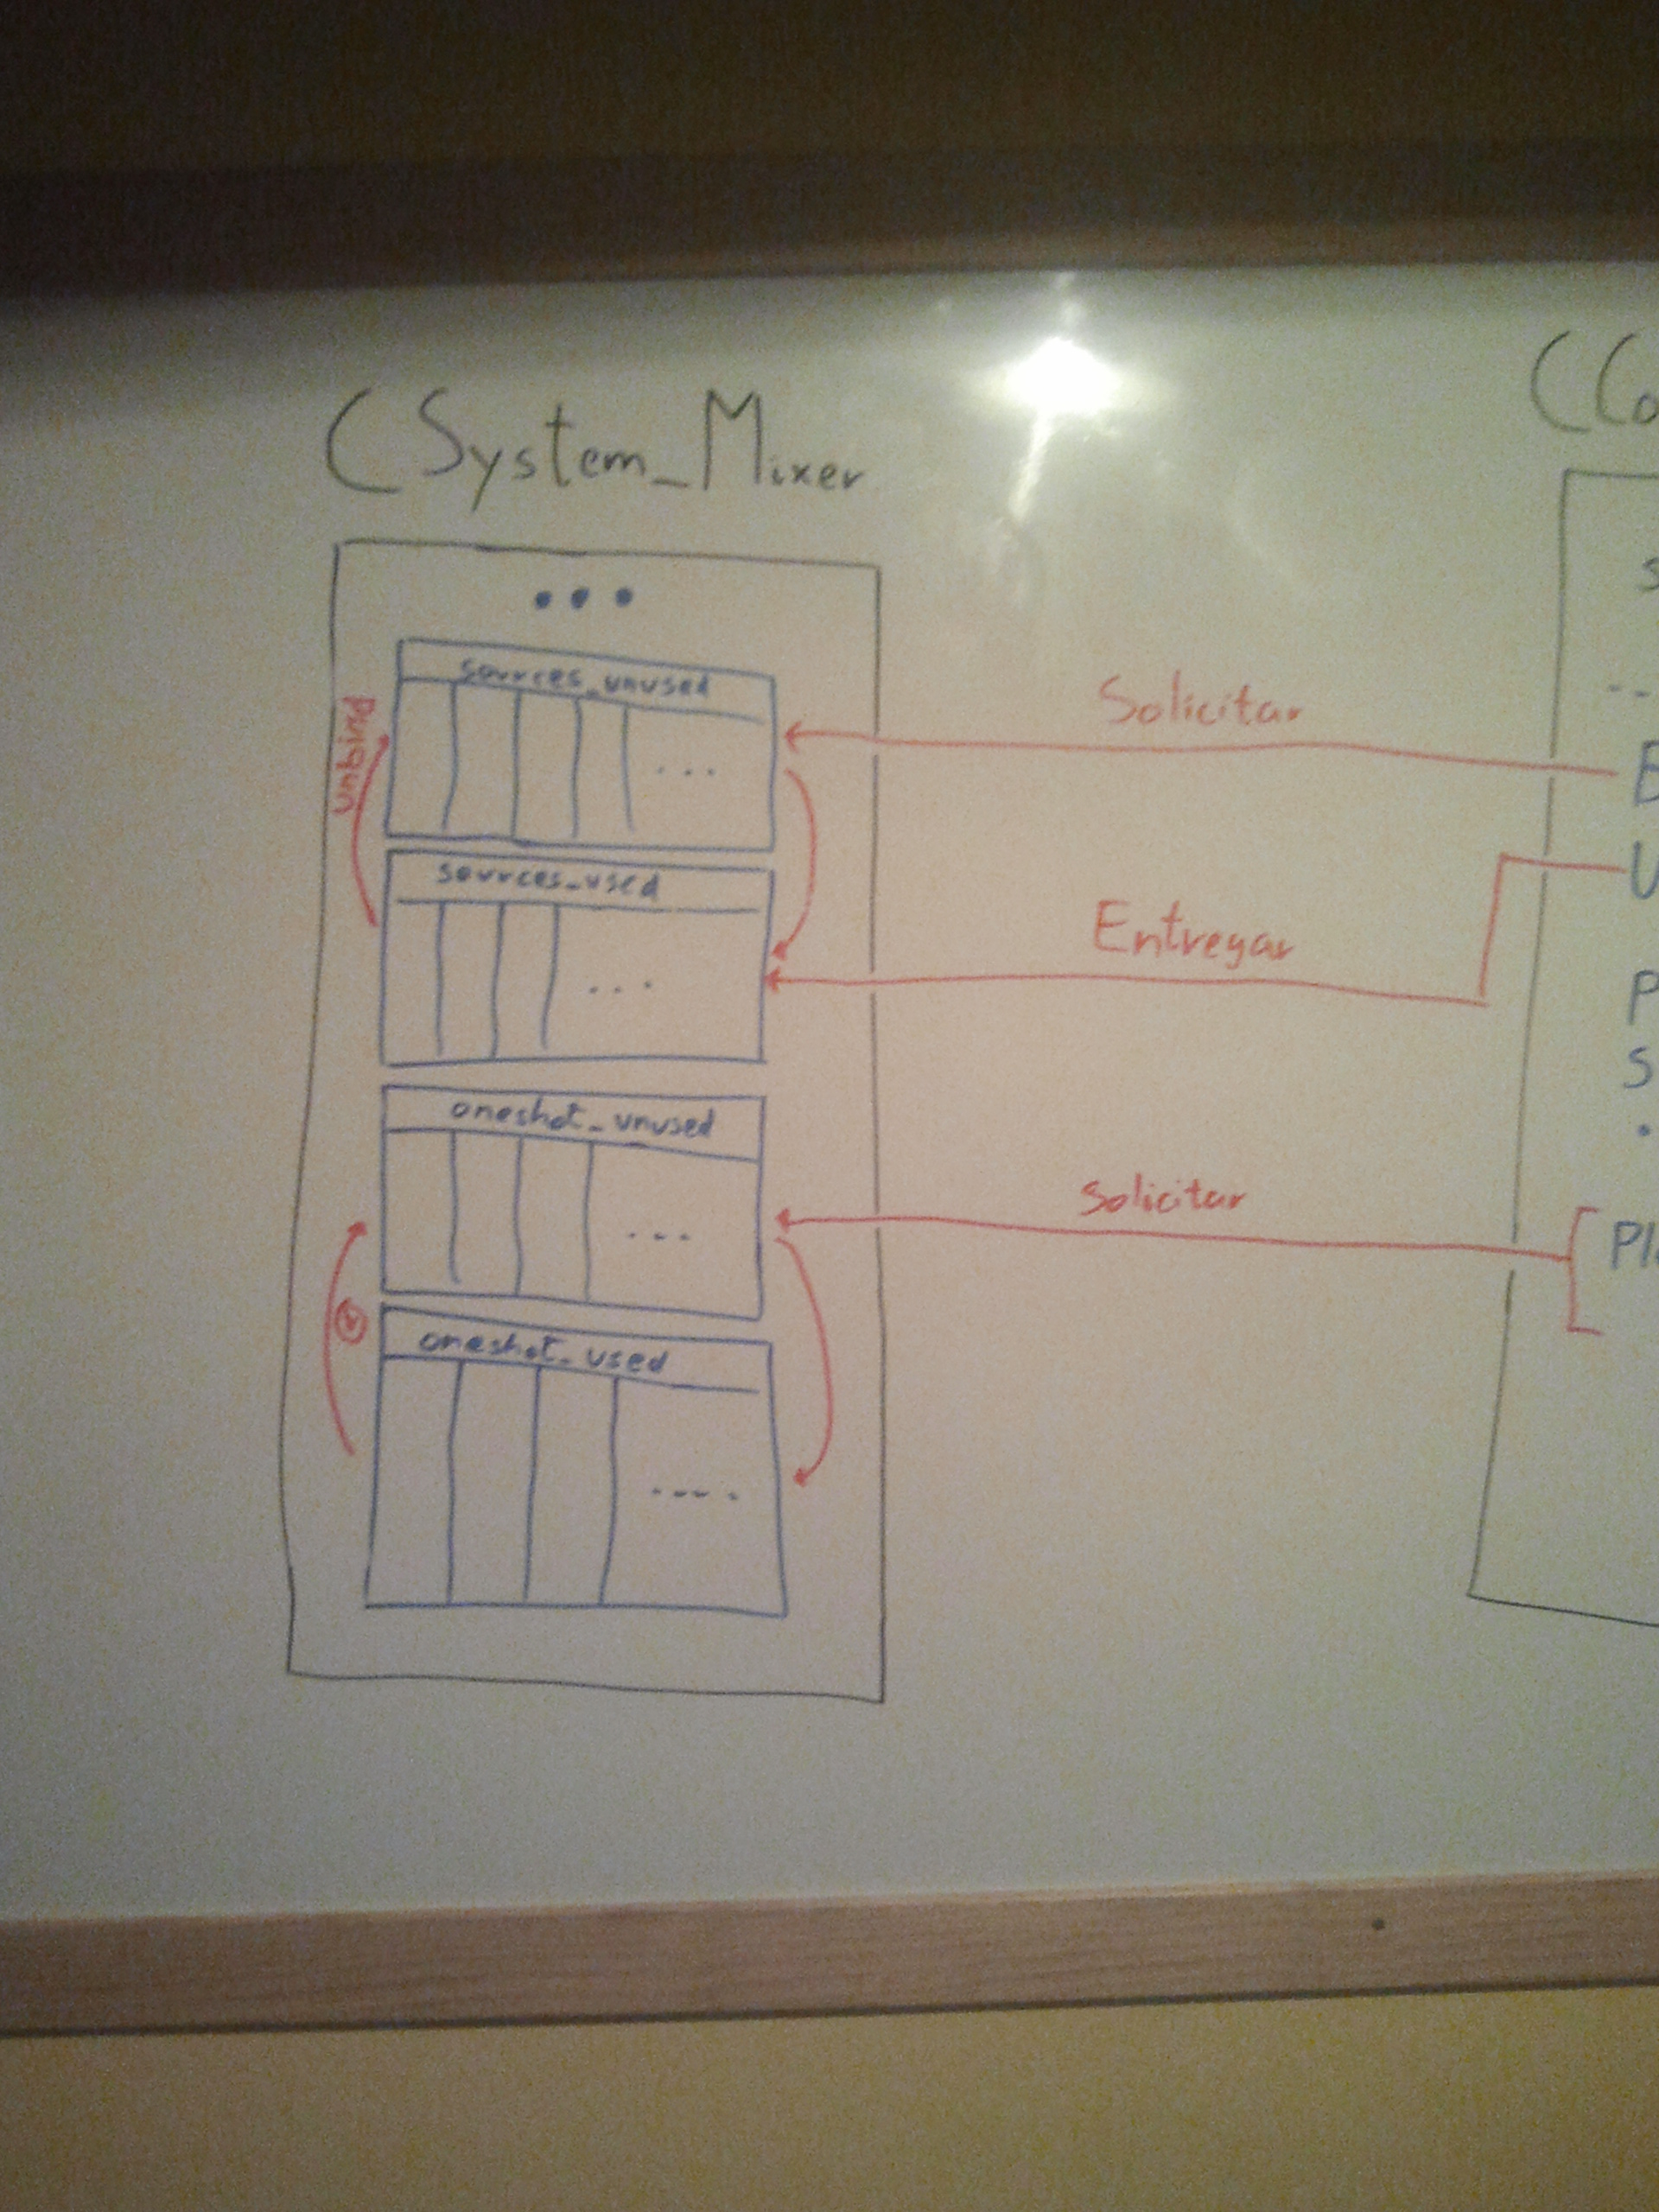 CSystem_Mixer
• • •
sources_unused
...
unbind
sources_used
...
oneshot_unused
...
oneshot_used
....
Solicitar
Entregar
Solicitar
CCo
S
...
B
U
P
S
.
Pla